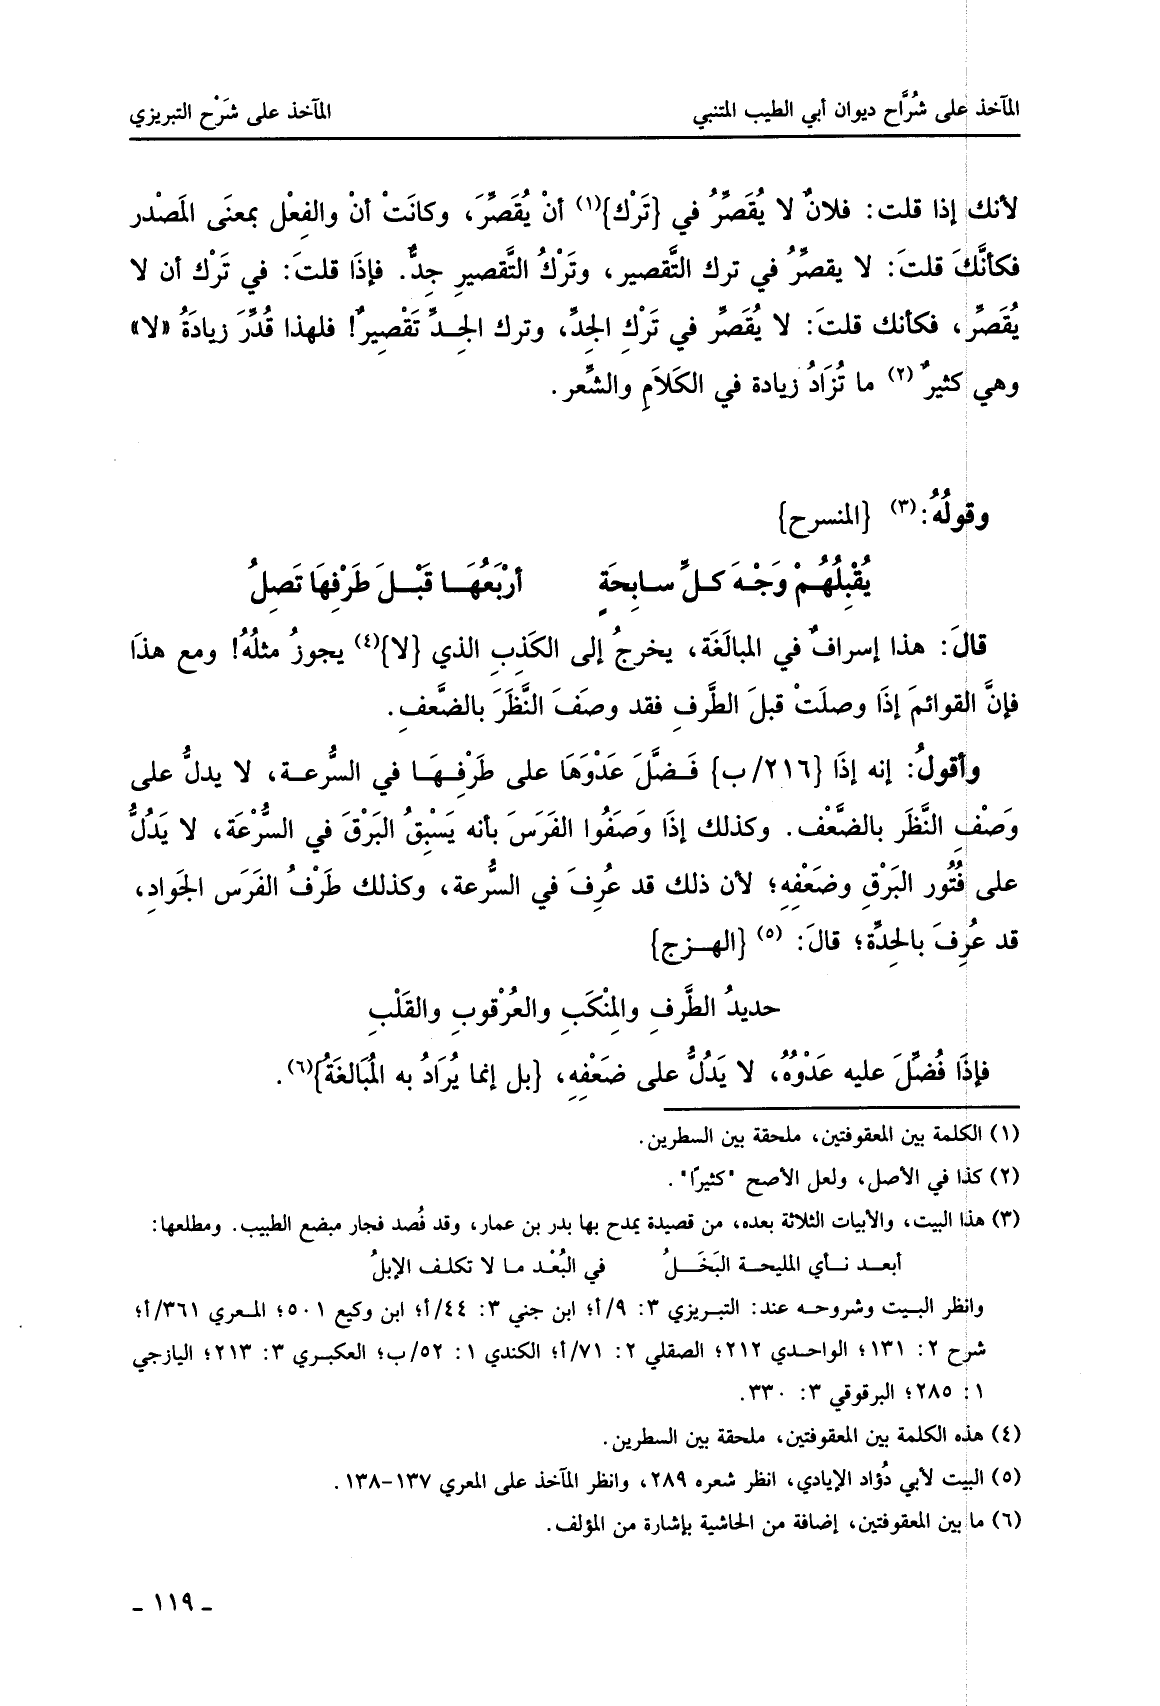 المآخذ على شُرَّاح ديوان أبي الطيب المتنبي المآخذ على شَرْح التبريزي
لأنك إذا قلت: فلانٌ لا يُقَصِّرُ في {تَرْك}(١) أنْ يُقَصِّرَ، وكانَتْ أنْ والفِعْل بمعنَى المَصْدر
فكأنَّكَ قلتَ: لا يقصِّرُ في ترك التَّقصير، وتَرْكُ التَّقصيرِ جِدٌّ. فإذَا قلتَ: في تَرْك أن لا
يُقَصِّر، فكأنك قلتَ: لا يُقَصِّر في تَرْكِ الجِدِّ، وترك الجِدِّ تَقْصيرٌ! فلهذا قُدِّرَ زيادَةُ «لا»
وهي كثيرٌ (٢) ما تُزَادُ زيادة في الكَلاَمِ والشِّعر.
وقولُهُ:(٣) {المنسرح}
يُقْبِلُهُمْ وَجْهَ كلِّ سابِحَةٍ أرْبَعُهَا قَبْلَ طَرْفِهَا تَصِلُ
قالَ: هذا إسرافٌ في المبالَغَة، يخرجُ إلى الكَذبِ الذي {لا}(٤) يجوزُ مثلُهُ! ومع هذَا
فإنَّ القوائمَ إذَا وصلَتْ قبلَ الطَّرفِ فقد وصَفَ النَّظَرَ بالضَّعفِ.
وأقولُ: إنه إذَا {٢١٦/ب} فَضَّلَ عَدْوَهَا على طَرْفِهَا في السُّرعة، لا يدلُّ على
وَصْفِ النَّظَر بالضَّعْف. وكذلك إذَا وَصَفُوا الفَرَسَ بأنه يَسْبِقُ البَرْقَ في السُّرْعَة، لا يَدُلُّ
على فُتُور البَرْقِ وضَعْفِهِ؛ لأن ذلك قد عُرِفَ في السُّرعة، وكذلك طَرْفُ الفَرَس الجَوادِ،
قد عُرِفَ بالحِدَّة؛ قالَ: (٥) {الهزج}
حديدُ الطَّرفِ والمِنْكَبِ والعُرْقوبِ والقَلْبِ
فإذَا فُضِّلَ عليه عَدْوُهُ، لا يَدُلُّ على ضَعْفِهِ، {بل إنما يُرَادُ به المُبَالغَةُ}(٦).
(١) الكلمة بين المعقوفتين، ملحقة بين السطرين.
(٢) كذا في الأصل، ولعل الأصح "كثيرًا".
(٣) هذا البيت، والأبيات الثلاثة بعده، من قصيدة يمدح بها بدر بن عمار، وقد فُصد فجار مبضع الطبيب. ومطلعها:
أبعد نأي المليحة البَخَلُ في البُعْد ما لا تكلف الإبلُ
وانظر البيت وشروحه عند: التبريزي ٣: ٩/أ؛ ابن جني ٣: ٤٤/أ؛ ابن وكيع ٥٠١؛ المعري ٣٦١/أ؛
شرح ٢: ١٣١؛ الواحدي ٢١٢؛ الصقلي ٢: ٧١/أ؛ الكندي ١: ٥٢/ب؛ العكبري ٣: ٢١٣؛ اليازجي
١: ٢٨٥؛ البرقوقي ٣: ٣٣٠.
(٤) هذه الكلمة بين المعقوفتين، ملحقة بين السطرين.
(٥) البيت لأبي دُؤاد الإيادي، انظر شعره ٢٨٩، وانظر المآخذ على المعري ١٣٧-١٣٨.
(٦) ما بين المعقوفتين، إضافة من الحاشية بإشارة من المؤلف.
ـ ١١٩ ـ